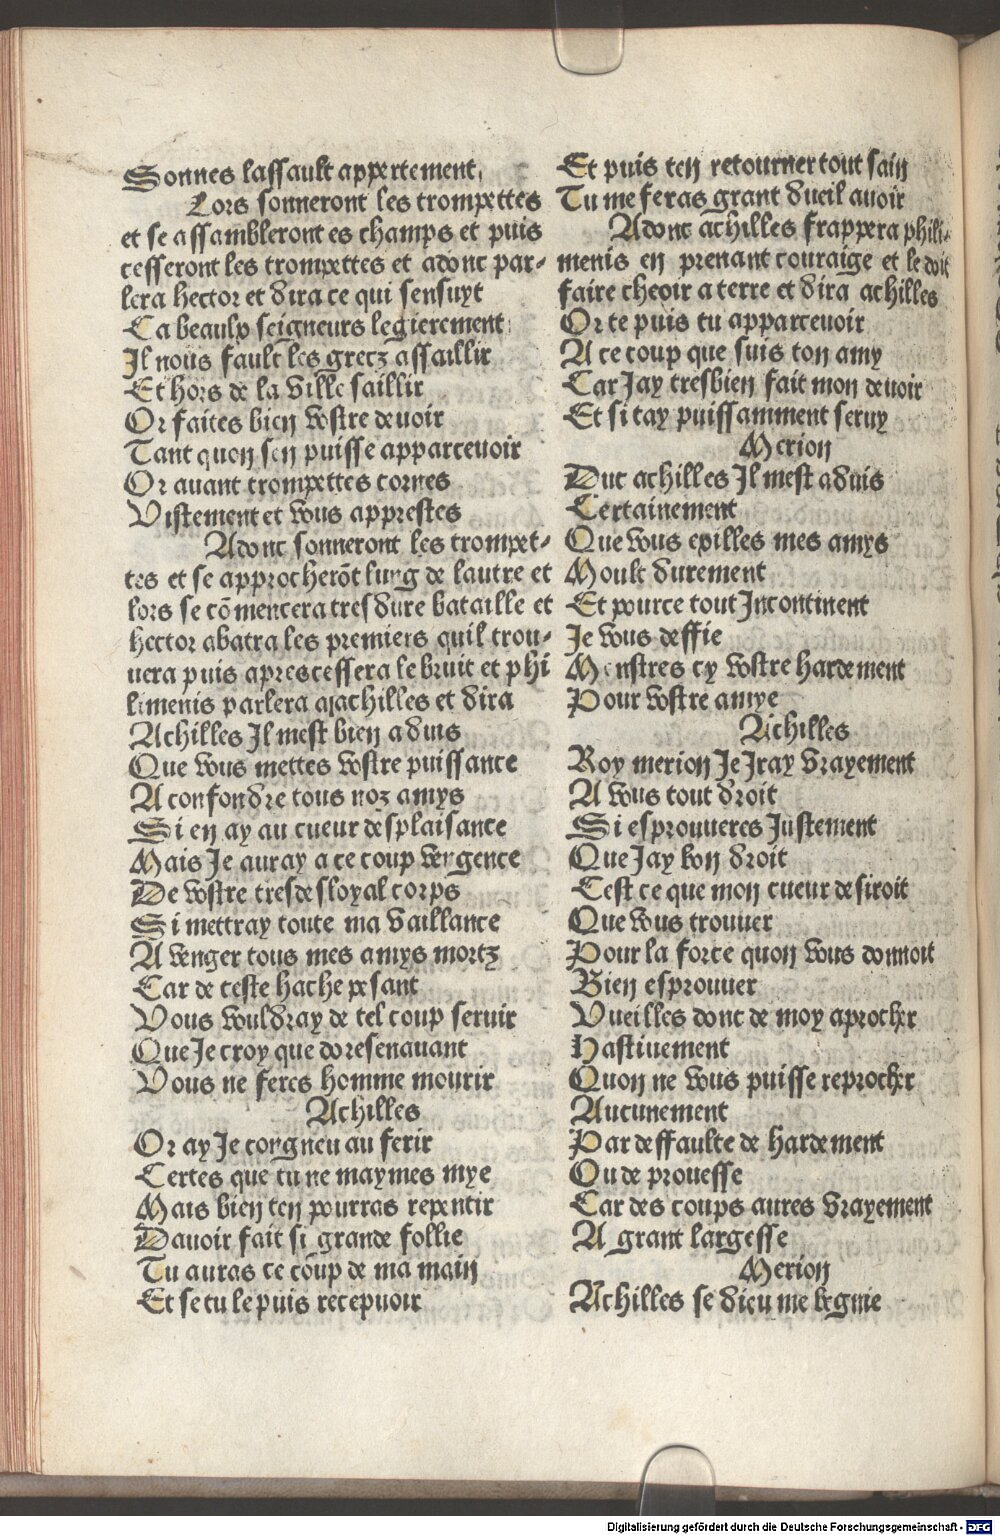 Sonnes lassault appertement,
Lors sonneront les trompettes
et se assambleront es champs et puis
cesseront les trompettes et adonc par-
lera hector et dira ce qui sensuyt
Ca beaulx seigneurs legierement
Il nous fault les grecz assaillir
Et hors de la ville saillir
Or faites bien vostre devoir
Tant quon sen puisse apparcevoir
Or auant trompettes cornes
Vistement et vous apprestes
Adonc sonneront les trompet-
tes et se approcherõt lung de lautre et
lors se cõmencera tres dure bataille et
hector abatra les premiers quil trou-
uera puis apres cessera le bruit et phi
limenis parlera a achilles et dira
Achilles Il mest bien aduis
Que vous mettes vostre puissance
A confondre tous noz amys
Si en ay au cueur desplaisance
Mais Je auray a ce coup vengence
De vostre tresdesloyal corps
Si mettray toute ma vaillance
A venger tous mes amys mortz
Car de ceste hache pesant
Vous vouldray de tel coup seruir
Que Je croy que doresenauant
Vous ne feres homme mourir
Achilles
Or ay Je congneu au ferir
Certes que tu ne maymes mye
Mais bien ten pourras repentir
Dauoir fait si grande follie
Tu auras ce coup de ma main
Et se tu le puis recepuoir
Et puis ten retourner tout sain
Tu me feras grant dueil auoir
Adonc achilles frappera phili-
menis en prenant couraige et le doit
faire cheoir a terre et dira achilles
Or te puis tu apparceuoir
A ce coup que suis ton amy
Car Jay tresbien fait mon deuoir
Et si tay puissamment seruy
Merion
Duc achilles Il mest aduis
Certainement
Que vous exilles mes amys
Moult durement
Et pource tout Incontinent
Je vous deffie
Monstres cy vostre hardement
Pour vostre amye
Achilles
Roy merion Je Iray vrayement
A vous tout droit
Si esprouueres Justement
Que Jay bon droit
Cest ce que mon cueur desiroit
Que vous trouuer
Pour la force quon vous donnoit
Bien esprouuer
Vueilles donc de moy aprocher
Hastiuement
Quon ne vous puisse reprocher
Aucunement
Par deffaulte de hardement
Ou de prouesse
Car des coups aures vrayement
A grant largesse
Merion
Achilles se dieu me begnie
Digitalisierung gefördert durch die Deutsche Forschungsgemeinschaft - DFG